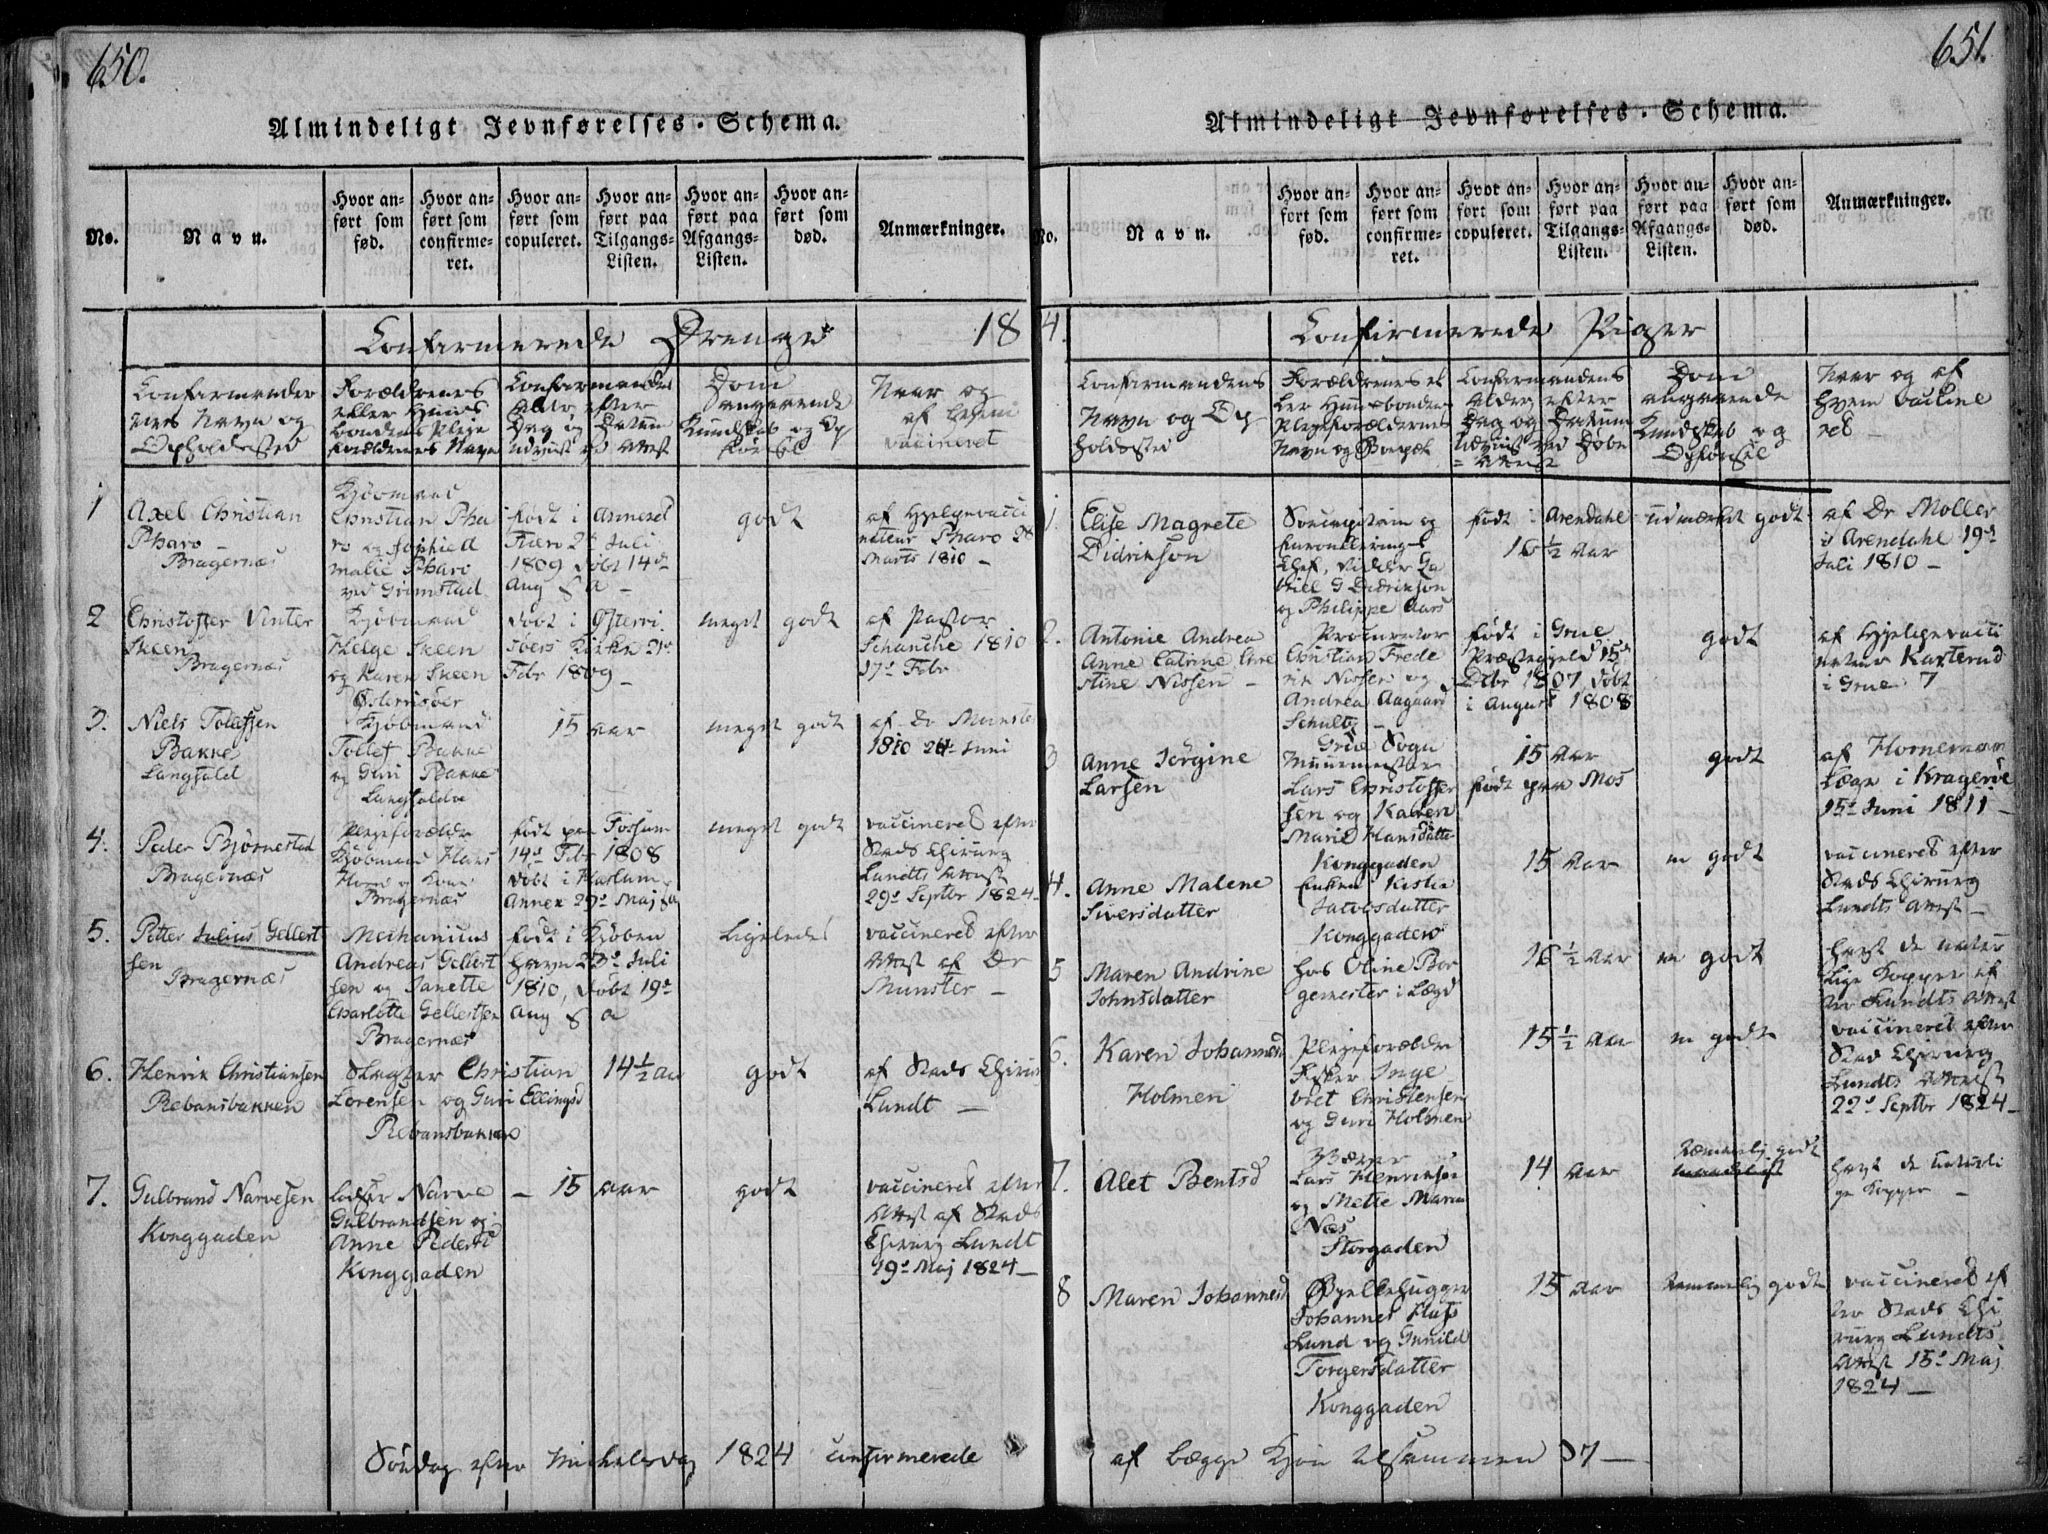 650.
Almindeligt Jevnførelses-Schema.
No.
Navn.
Hvor anført som fød.
Hvor anført som confirmeret.
Hvor anført som copuleret.
Hvor anført paa Tilgangs-Listen.
Hvor anført paa Afgangs-Listen.
Hvor anført som død.
Anmærkninger.
Confirmerede Drenge
18
Navn og
Opholdssted
Forældrenes
eller Huus
bondens Pleje
forældrenes Navn
Alder efter
Dag og Datum
Kundskab og Op
førsel
Naar og
af
vaccineret
1
Axel Christian
Pharo
Bragernæs
Kjøbmand
Christian Pha
ro og Sophie A
malie Pharo
ved Grimstad
født i
2d Juli
1809 døbt 14de
Aug s a
godt
af Hjelpevacci
nateur Pharo 28
Marts 1810 –
2
Christoffer Vinter
Skeen
Bragernæs
Kjøbmand
Helge Skeen
og Karen Skeen
Østerrisöer
døbt i Østerri
söers Kirke 21de
Febr 1809 –
meget godt
af Pastor
Schanche 1810
17de Febr
3.
Niels Tolefsen
Bakke
Langsøld
Kjøbmand
Tollef Bakke
og Guri Bakke
15 aar
meget godt
af Dr Munster
1810 24de Juni
4.
Peder Bjørnestad
Bragernæs
Plejeforældre
Kjøbmand Hans
Bragernæs
født paa Fossum
14de Febr 1808
døbt i Haslum
Annex 29de Maj s a
meget godt
vaccineret efter
Stads Chirurg
Lundts Attest
29de Septbr 1824
5.
Petter Julius Gellert
sen
Bragernæs
Mechanicus
Andreas Gellert
sen og Janette
Charlotte Gellertsen
Bragernæs
født i Kjøben
havn 23de Juli
1810, døbt 19de
Aug s a
Ligeledes
vaccineret efter
Attest af Dr
Munster –
6.
Henrik Christiansen
Rebansbakken
Slagter Christian
Lorensen og Guri Ellingsd
Rebansbakken
14½ aar
godt
af Stads Chirurg
Lundt –
7.
Gulbrand Narvesen
Konggaden
Narve
Gulbrandsen og
Anne Pedersd
Konggaden
– 15 aar
godt
vaccineret efter
Attest af Stads
Chirurg Lundt
19de Maj 1824 –
Söndag efter Michelsdag 1824 confirmerede
651.
Almindeligt Jevnførelses-Schema.
No.
Navn.
Hvor anført som fød.
Hvor anført som confirmeret.
Hvor anført som copuleret.
Hvor anført paa Tilgangs-Listen.
Hvor anført paa Afgangs-Listen.
Hvor anført som død.
Anmærkninger.
4.
Confirmerede Piger
Confirmandens
Navn og Op
holdssted
Forældrenes el
ler Huusbonden
Plejeforældrenes
Navn og Bopæl
Confirmandens
Alder efter
Dag og Datum
udviist ved Døbe
Attest
Dom
angaaende
Kundskab og
Opførsel
Naar og af
hvem vaccine
ret –
1.
Elise Magrete
Didrikson
og
Chef, Ridder Ga
briel G Didrikson
og Philippe Aars
født i Arendahl
16½ Aar
udmærket godt
af Dr Moller
i Arendahl 19de
Juli 1810 –
2.
Antonie Andrea
Anne Catrine Chri
stine Nissen –
Procurator
Christian Frede
rik Nissen og
Andrea Aagaard
Schultz –
Grue Sogn
født i Grue
Præstegield 15de
Dcbr 1807 døbt
i August 1808
godt
af Hjelpevacci
nateur Karterud
i Grue
3
Anne Jörgine
Larsen
Muurmester
Lars Christoffer
sen og Karen
Marie Hansdatter
Konggaden
15 Aar
født paa Mos
godt
af Horneman
Læge i Kragerøe
15de Juni 1811 –
4.
Anne Malene
Siversdatter
Enken Kistie
Jacobsdatter
Konggaden
15 Aar
m godt
vaccineret efter
Stads Chirurg
Lundts Attest –
5
Maren Andrine
Johnsdatter
hos Oline Bor
gemester i Lægd
16½ Aar
m godt
havt de natur
lige Kopper ef
ter Lundts Attest
6.
Karen Johannesd
Holmen
Plejeforældre
Fisker Inge
bret Christensen
og Guri Holmen
15½ Aar
m godt
vaccineret efter
Stads Chirurg
Lundts Attest
22de Septbr 1824 –
7.
Alet Bentsd
Lars Henriksen
og Mette Maria
Næs
Storgaden
14 Aar
Temmelig godt
havt de naturli
ge Kopper –
8
Maren Johannesd
Johannes Hafs
Lund og Gunild
Torgersdatter
Konggaden
15 Aar
Temmelig godt
vaccineret ef
ter Stads Chi
rurg Lundts
Attest 15de Maj
1824 –
af begge Kjön tilsammen 37 –